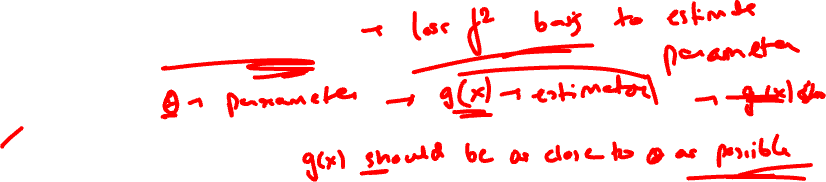 → loss fⁿ basis to estimate
parameter
θ → parameter → g(x) → estimator → g(x)
g(x) should be as close to θ as possible